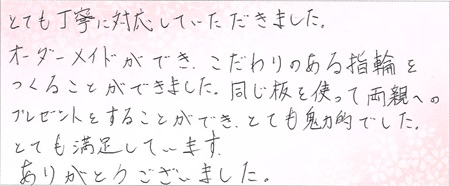 とても丁寧に対応していただきました。
オーダーメイドができ、こだわりのある指輪を
つくることができました。同じ板を使って両親への
プレゼントをすることができ、とても魅力的でした。
とても満足しています。
ありがとうございました。